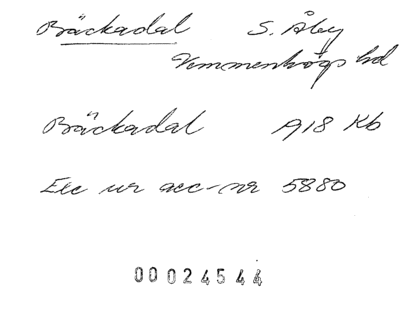 Bäckadal S. Åby
Vemmenhögs hd
Bäckadal A18 Kb
Exc ur acc-nr 5880
00024544